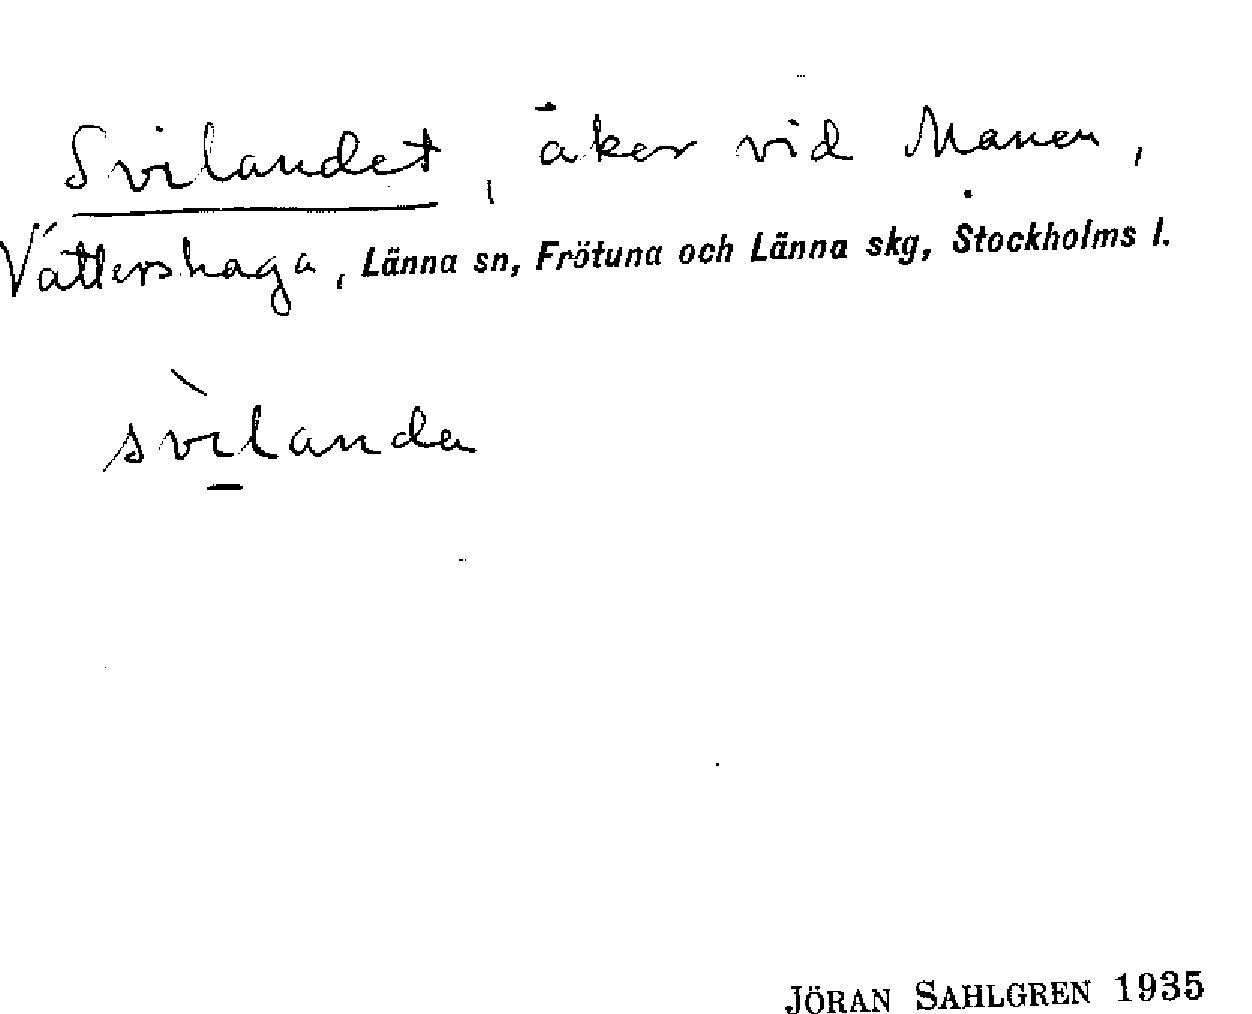 Svilandet, åker vid Manen,
Vättershaga, Länna sn, Frötuna och Länna skg, Stockholms l.
svìlanda
JÖRAN SAHLGREN 1935